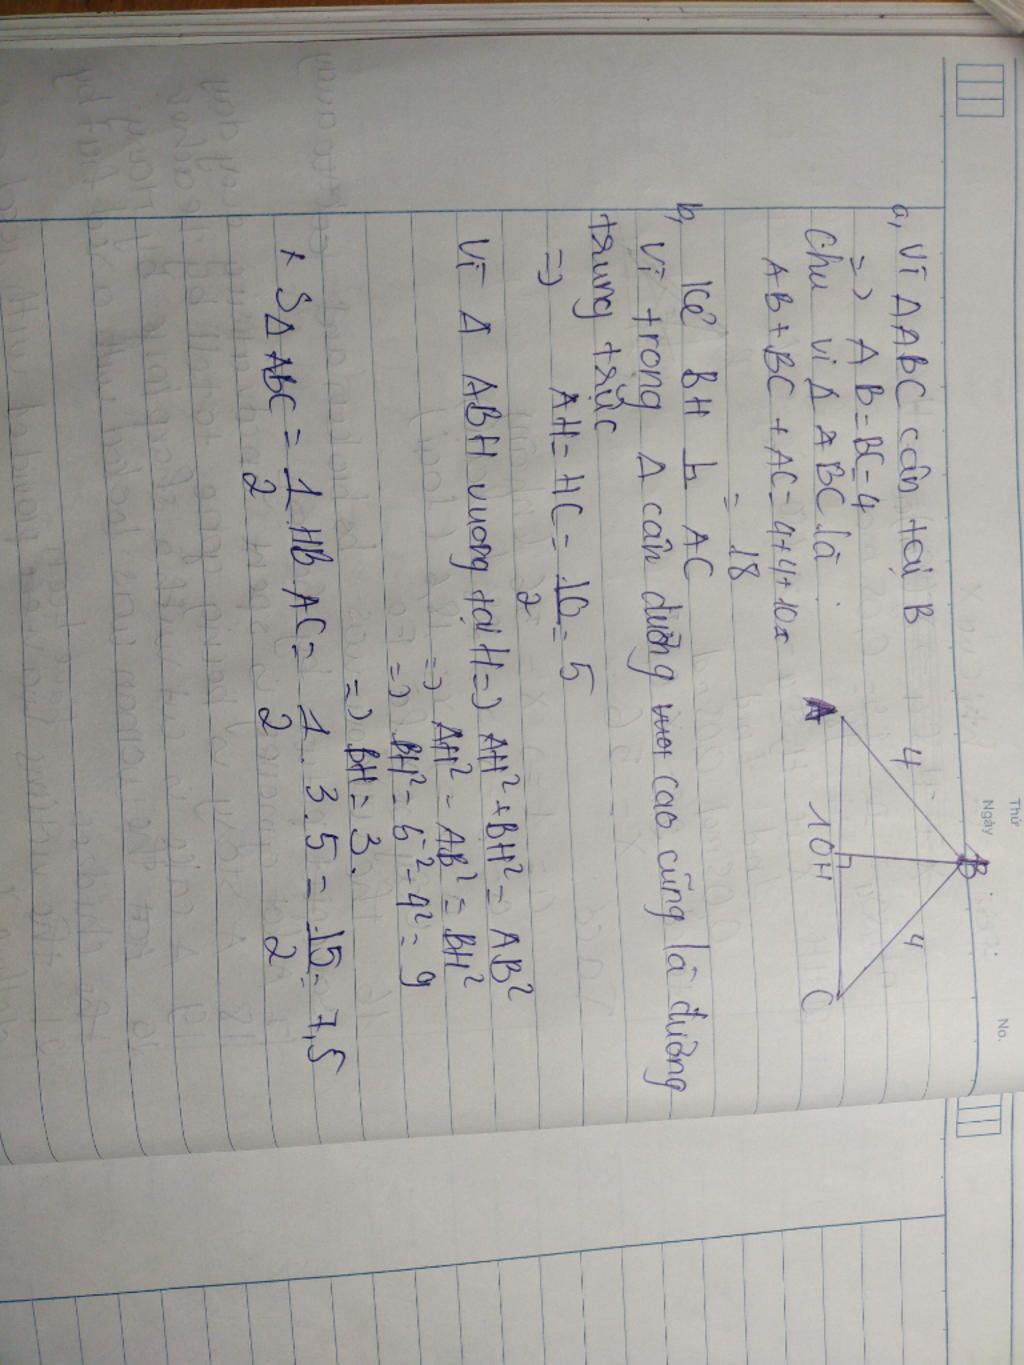 Thứ
Ngày
No.
a, Vì ΔABC cân tại B
=> AB = BC = 4
Chu vi Δ ABC là :
AB + BC + AC = 4+4+10
= 18
B
4
4
A
10
H
C
b, Kẻ BH ⊥ AC
Vì trong Δ cân đường cao cũng là đường
trung trực
=> AH = HC = 10/2 = 5
Vì Δ ABH vuông tại H => AH² + BH² = AB²
=> AH² - AB² = BH²
=> BH² = 5² - 4² = 9
=> BH = 3.
* SΔABC = 1/2 HB . AC = 1/2 . 3 . 5 = 15/2 = 7,5